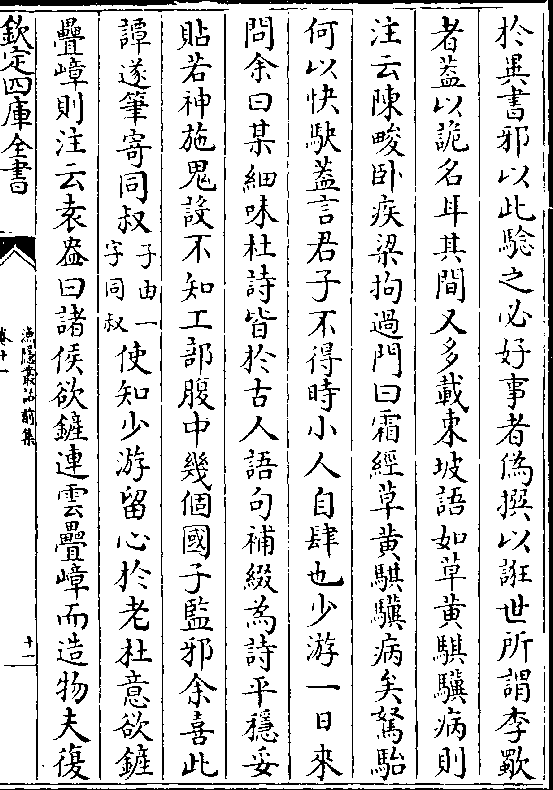 於異書邪以此驗之必好事者偽撰以誑世所謂李歜
者葢以詭名耳其間又多載東坡語如草黄騏驥病則
注云陳畯卧疾梁拘過門曰霜經草黄騏驥病矣駑駘
何以快駛葢言君子不得時小人自肆也少游一日來
問余曰某細味杜詩皆於古人語句補綴為詩平穩妥
貼若神施鬼設不知工部腹中幾個國子監邪余喜此
譚遂筆寄同叔子由一字同叔使知少游留心於老杜意欲鏟
疊嶂則注云袁盎曰諸侯欲鏟連雲疊嶂而造物夫復
欽定四庫全書
漁隠叢話前集
卷十一
十一